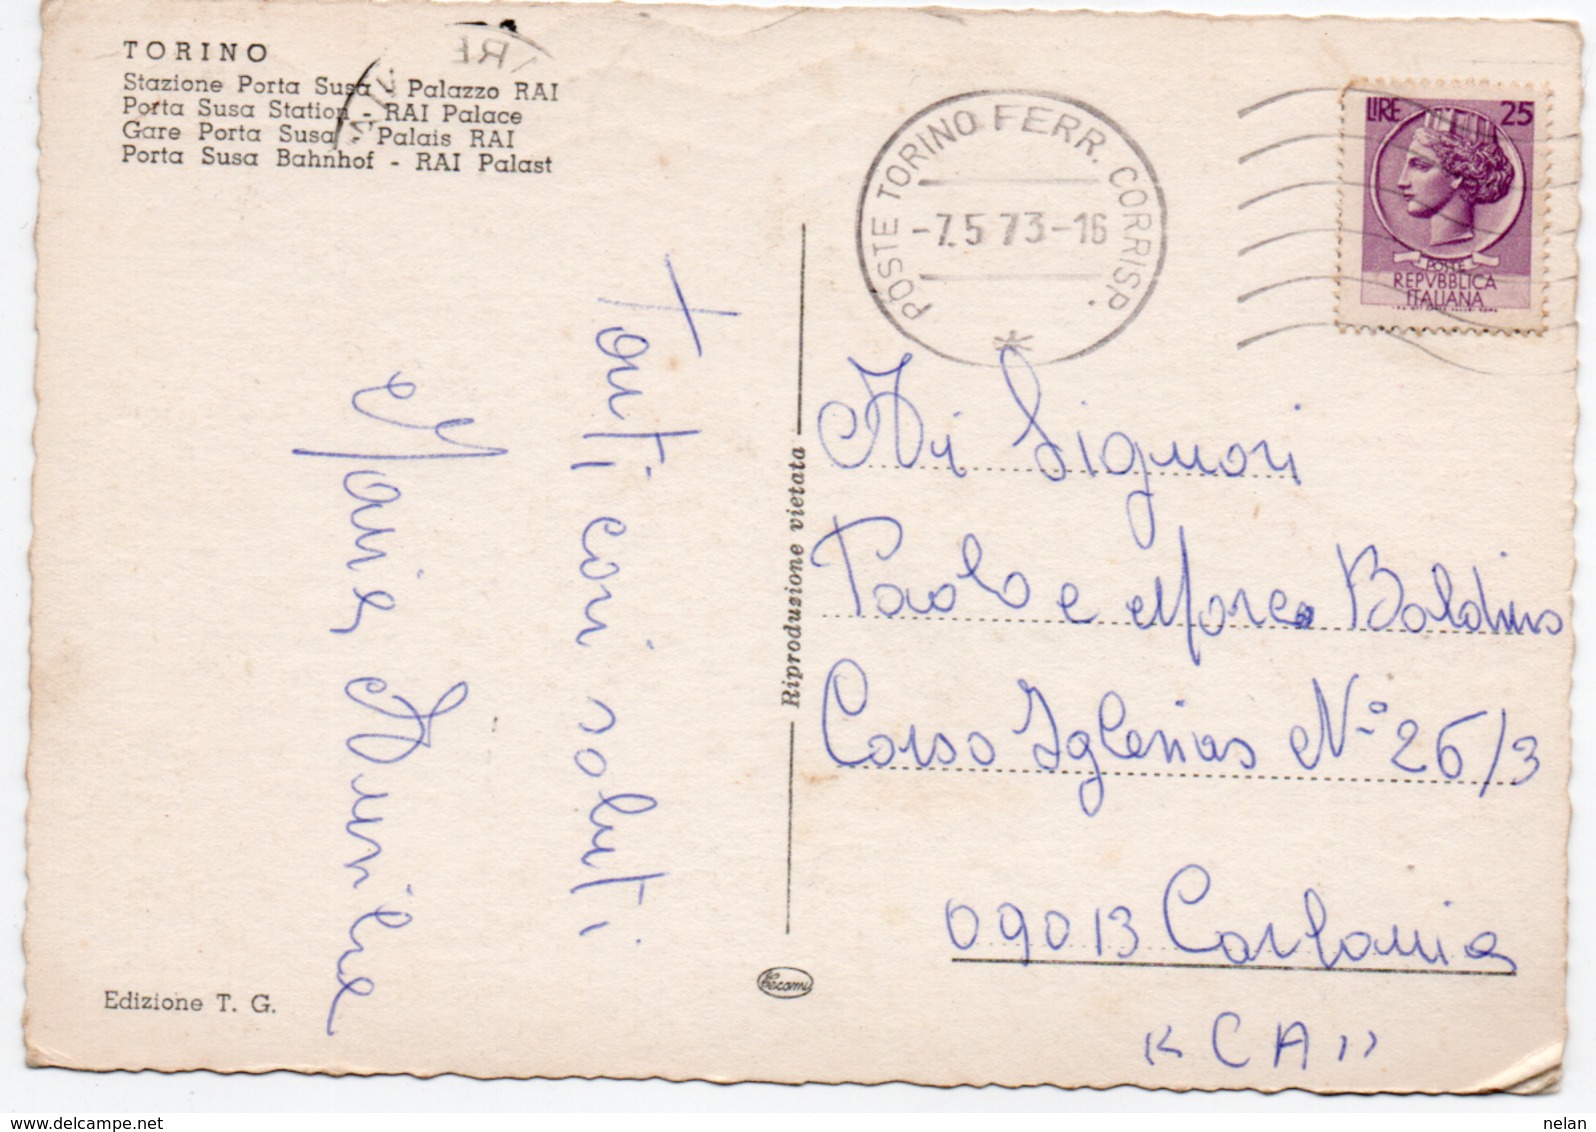 TORINO
Stazione Porta Susa - Palazzo RAI
Porta Susa Station - RAI Palace
Gare Porta Susa - Palais RAI
Porta Susa Bahnhof - RAI Palast
POSTE TORINO FERR. CORRISP.
-7.5 73-16
LIRE 25
POSTE
REPVBBLICA
ITALIANA
Tanti cari saluti
Maria
Riproduzione vietata
Ai Signori
Paolo e Marca Baldino
Corso Iglesias N.° 26/3
09013 Carbonia
"CA"
Edizione T. G.
Cecami
delcampe.net
nelan